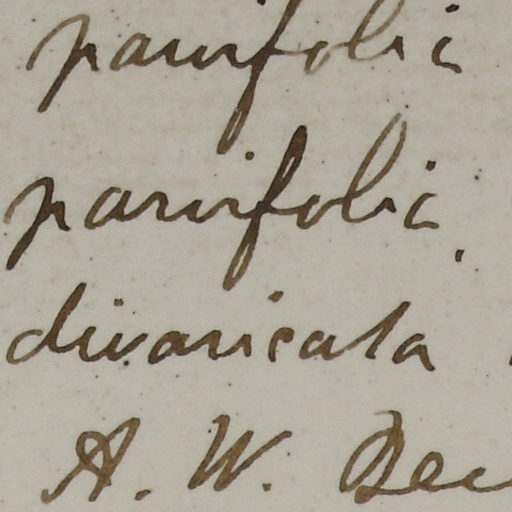 parvifolia
parvifolia
divaricata
A. W. Bec